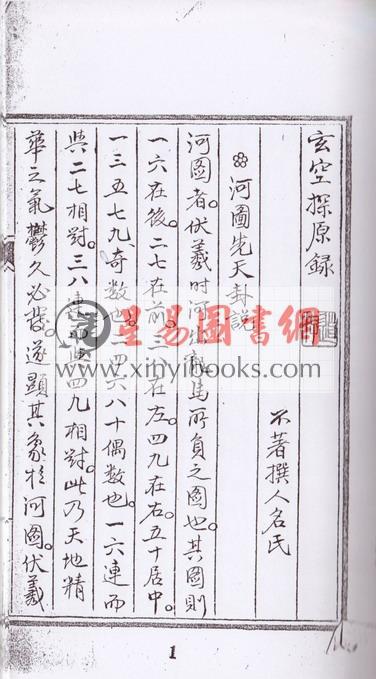 玄空探原録
不著撰人名氏
❁河圖先天卦說
河圖者。伏羲时河出龍馬所負之圖也。其圖則
一六在後。二七在前。三八在左。四九在右。五十居中。
一三五七九、奇数也。二四六八十偶数也。一六連而
與二七相對。三八連而與四九相對。此乃天地精
華之氣鬱久必發。遂顯其象於河圖。伏羲
星易圖書網
www.xinyibooks.com
1